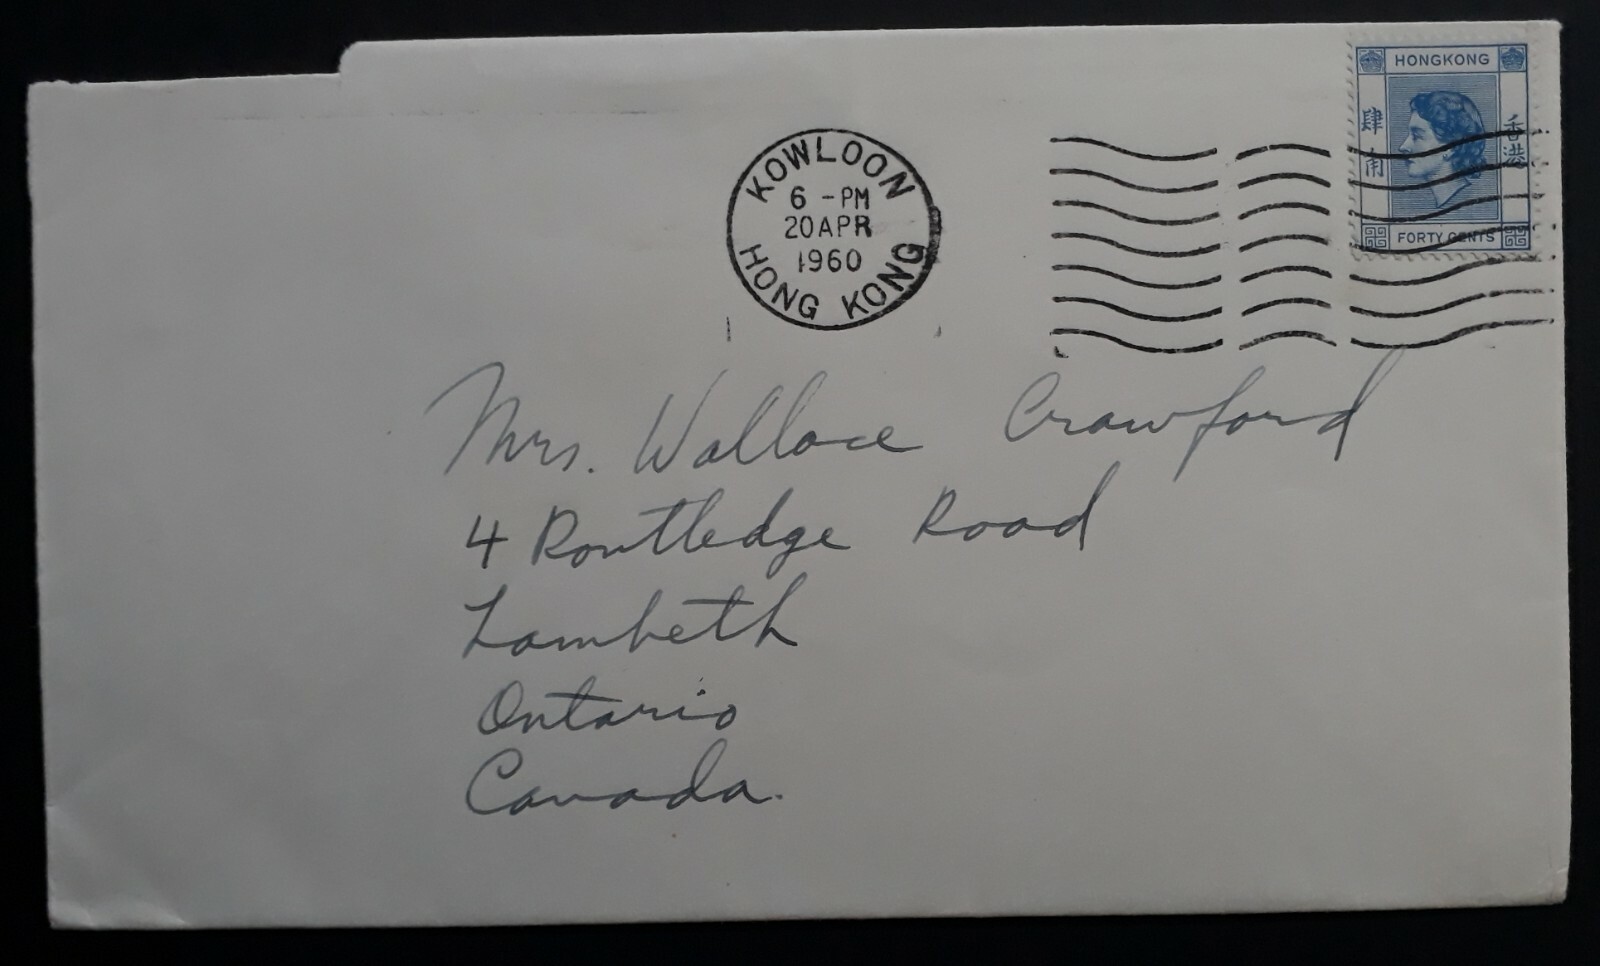 HONGKONG
肆角
香港
FORTY CENTS
KOWLOON
6 - PM
20 APR
1960
HONG KONG
Mrs. Wallace Crawford
4 Routledge Road
Lambeth
Ontario
Canada.